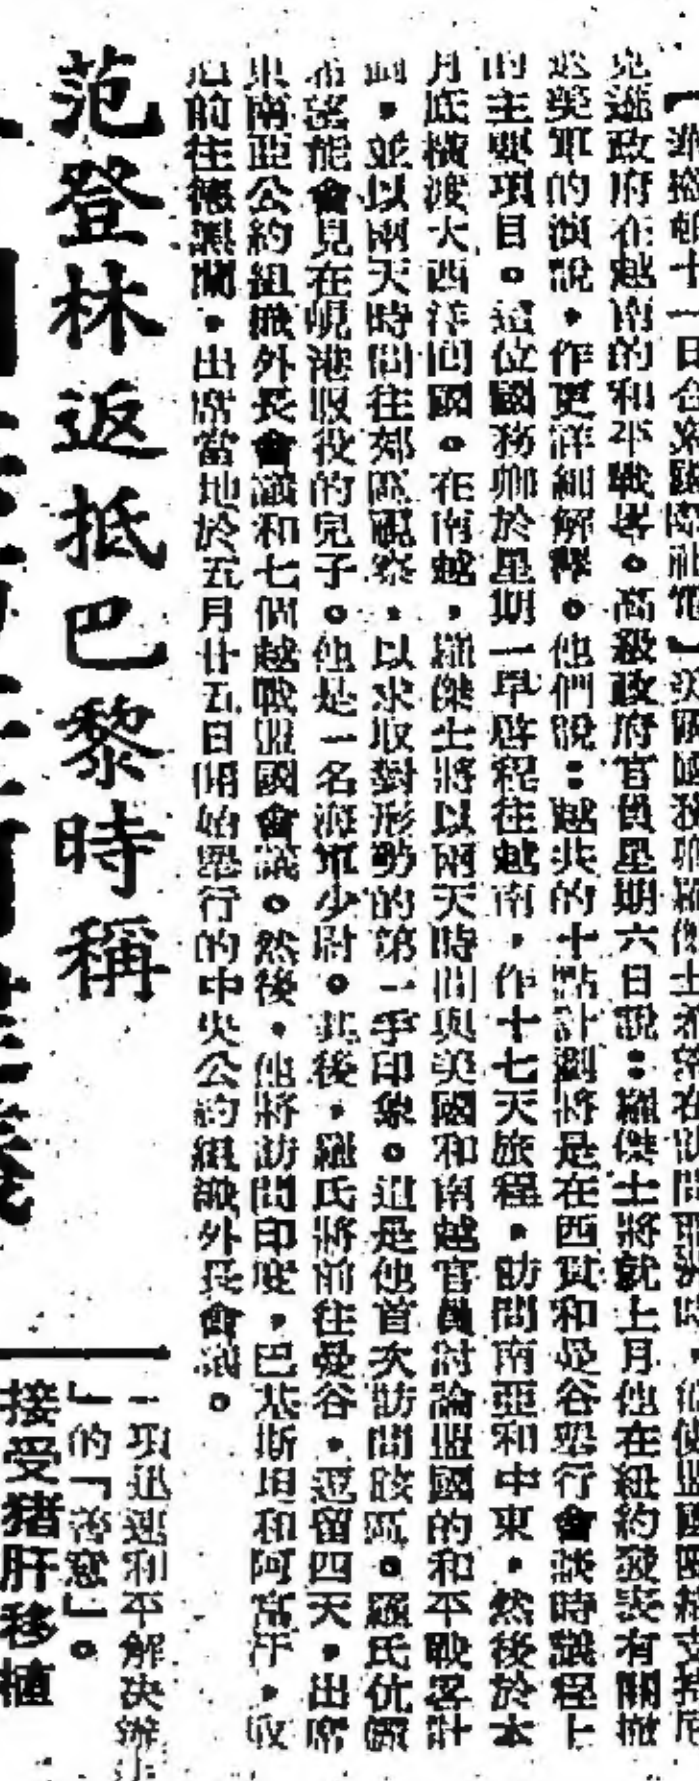 十一日合衆國際社電】美國國務卿羅傑士希望在訪問亞洲時，
克遜政府在越南的和平戰畧。高級政府官員星期六日說：羅傑士將就上月他在紐約發表有關撤
退美軍的演說，作更詳細解釋。他們說：越共的十點計劃將是在西貢和曼谷舉行會談時議程上
的主要項目。這位國務卿於星期一早啓程往越南，作十七天旅程，訪問南亞和中東，然後於本
月底橫渡大西洋回國。在南越，羅傑士將以兩天時間與美國和南越官員討論盟國的和平戰畧計
劃，並以兩天時間往郊區視察，以求取對形勢的第一手印象。這是他首次訪問該區。羅氏伉儷
希望能會見在峴港服役的兒子。他是一名海軍少尉。其後，羅氏將前往曼谷，逗留四天，出席
東南亞公約組織外長會議和七個越戰盟國會議。然後，他將訪問印度，巴基斯坦和阿富汗，取
道前往德黑蘭，出席當地於五月廿五日開始舉行的中央公約組織外長會議。
范登林返抵巴黎時稱
一項迅速和平解决辦法
」的「善意」。
接受猪肝移植